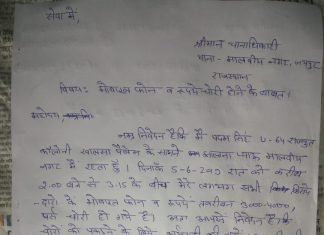 सेवा में,
श्रीमान थानाधिकारी
थाना - मालवीय नगर, जयपुर
राजस्थान
विषय: मोबाइल फोन व रुपये चोरी होने के बाबत।
महोदय
नम्र निवेदन है कि मैं पदम सिंह U-64 राजपूत
कॉलोनी खालसा पैलेस के सामने मालवीय
नगर में रहता हूँ। दिनांक 5-6-200 रात को करीब
2.00 बजे से 3:15 के बीच मेरे लगभग सभी
के मोबाइल फोन व रुपये तकरीबन 3000-4000,
चोरी हो गये है। अतः आपसे निवेदन है कि
चोरो को पकड़ने के लिए